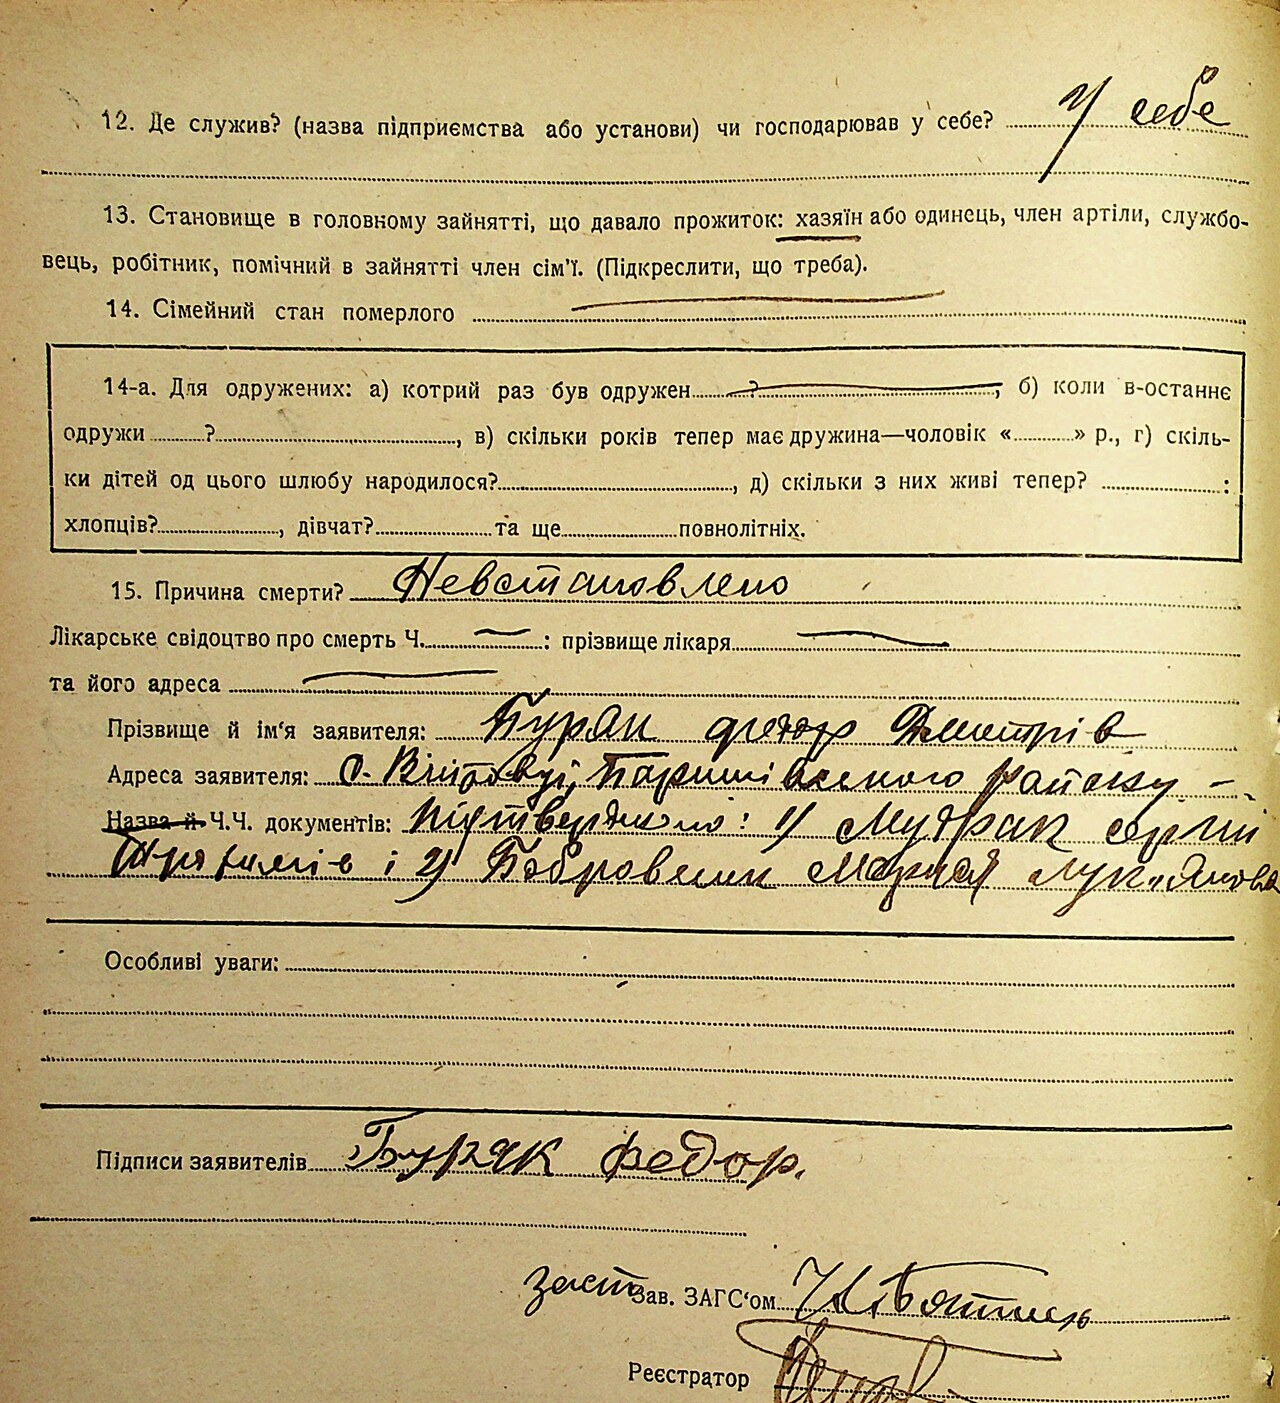 12. Де служив? (назва підприємства або установи) чи господарював у себе? У себе
13. Становище в головному зайнятті, що давало прожиток: хазяїн або одинець, член артіли, службо-
вець, робітник, помічний в зайнятті член сім'ї. (Підкреслити, що треба).
14. Сімейний стан померлого
14-а. Для одружених: а) котрий раз був одружен ?, б) коли в-останнє
одружи ?, в) скільки років тепер має дружина—чоловік « » р., г) скіль-
ки дітей од цього шлюбу народилося?, д) скільки з них живі тепер? :
хлопців?, дівчат? та ще повнолітніх.
15. Причина смерти? Невстановлено
Лікарське свідоцтво про смерть Ч. : прізвище лікаря
та його адреса
Прізвище й ім'я заявителя: Буряк Федор Дмитрів
Адреса заявителя: с. Баришівського району
Назва й Ч.Ч. документів: Підтверджено: 1) Мудрак Сергій
Трохимів і 2) Бобровник Марія Лук"янова
Особливі уваги:
Підписи заявителів Буряк Федор.
заст Зав. ЗАГС'ом
Реєстратор